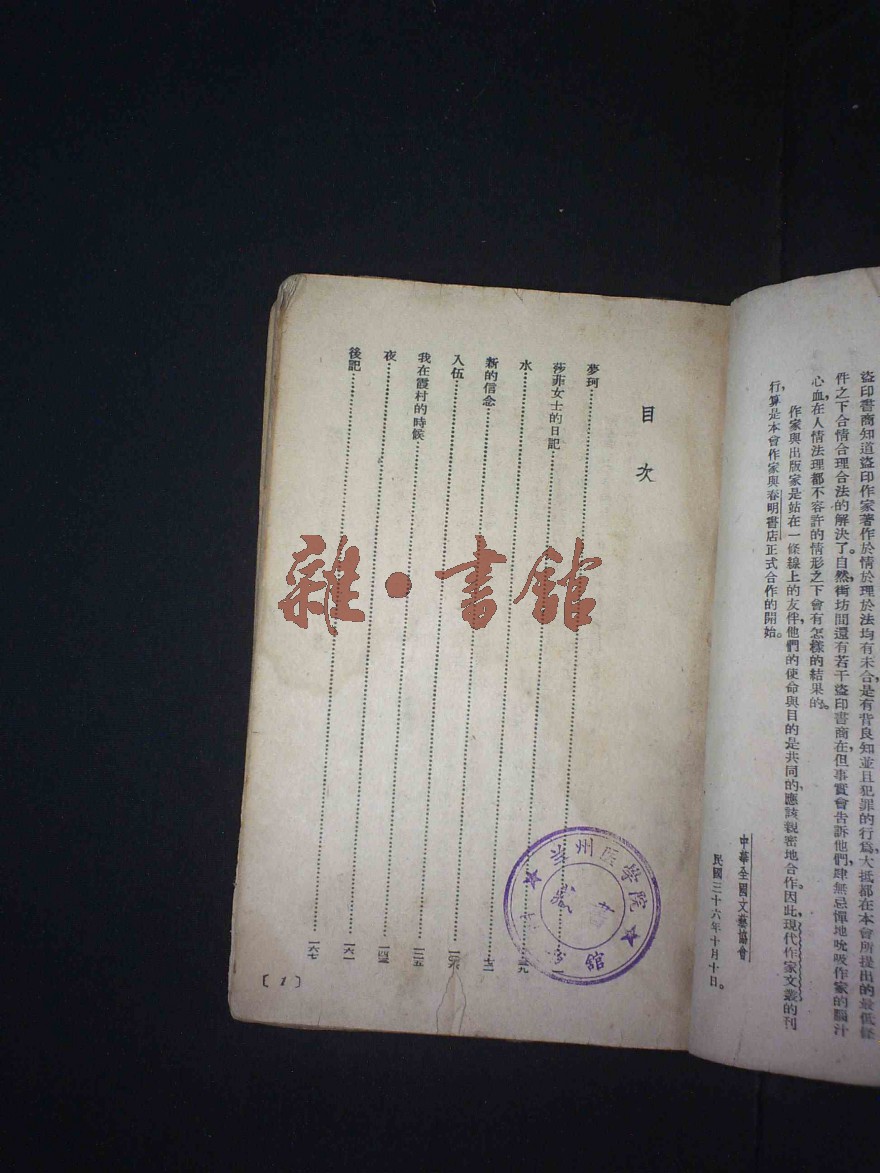 盜印書商知道盜印作家著作於情於理於法均有未合，是有背良知並且犯罪的行爲，大抵都在本會所提出的最低條
件之下合情合理合法的解決了。自然，街坊間還有若干盜印書商在，但事實會告訴他們，肆無忌憚地吮吸作家的腦汁
心血，在人情法理都不容許的情形之下會有怎樣的結果的。
作家與出版家是站在一條線上的友伴，他們的使命與目的是共同的，應該親密地合作。因此，現代作家文叢的刊
行，算是本會作家與春明書店正式合作的開始。
中華全國文藝協會
民國三十六年十月十日。
目次
夢珂……一
莎菲女士的日記……三九
水……
新的信念……
入伍……一二五
我在霞村的時候……一四三
夜……一六一
後記……一六七
〔1〕
兰州医学院
藏書
館
雜·書館